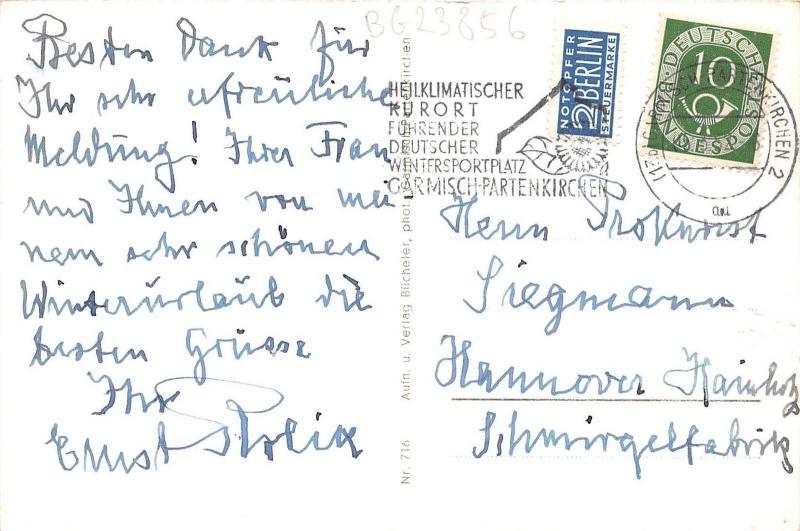 BG23856
Besten Dank für
Ihr sehr erfreuliche
Meldung! Ihrer Frau
und Ihnen von mei
nem sehr schönen
Winterurlaub die
besten Grüsse
Ihr
Ernst
Nr. 716 Aufn. u. Verlag Bücheler, phot.
HEILKLIMATISCHER
KURORT
FÜHRENDER
DEUTSCHER
WINTERSPORTPLATZ
GARMISCH-PARTENKIRCHEN
NOTOPFER
2 BERLIN
STEUERMARKE
DEUTSCHE
10
BUNDESPOST
GARMISCH-PARTENKIRCHEN 2
Herrn Prokurist
Siegmann
Hannover Hainholz
Schmirgelfabrik